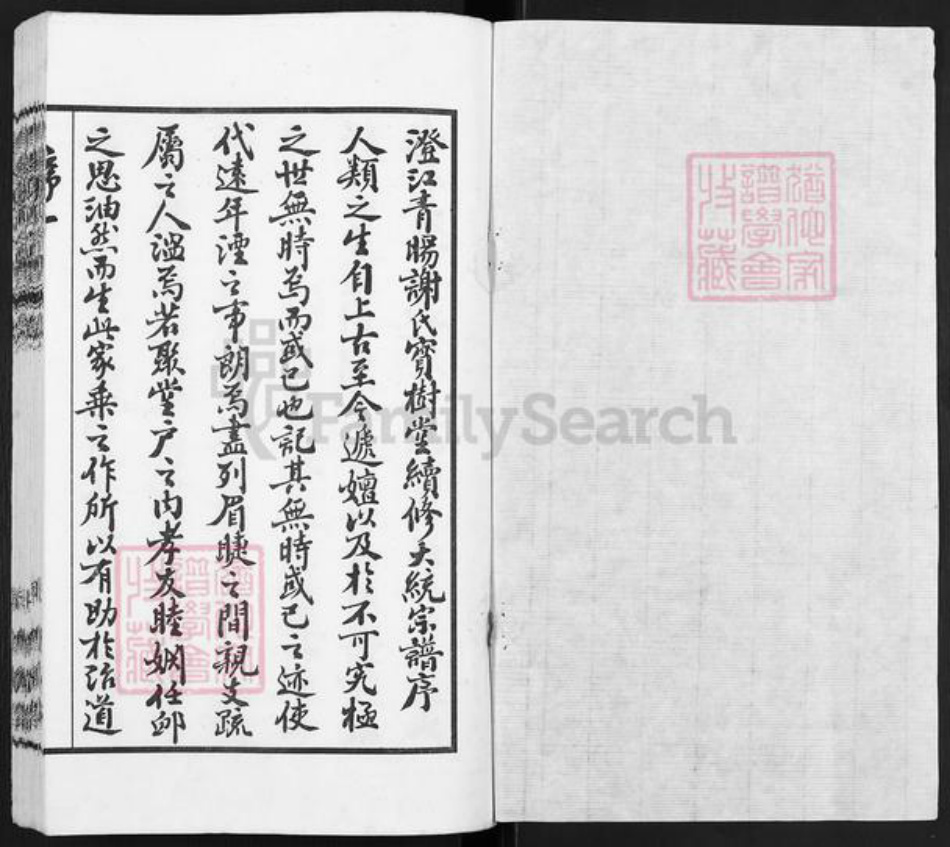 澄江青暘謝氏寶樹堂續修大統宗譜序
人類之生自上古至今遞嬗以及於不可究極
之世無時焉而或已也記其無時或已之迹使
代遠年湮之事朗焉盡列眉睫之間親支疏
屬之人藹焉若聚堂戶之內孝友睦婣任卹
之思油然而生此家乘之作所以有助於治道
序一
猶他家
譜學會
收藏
猶他家
譜學會
收藏
FamilySearch